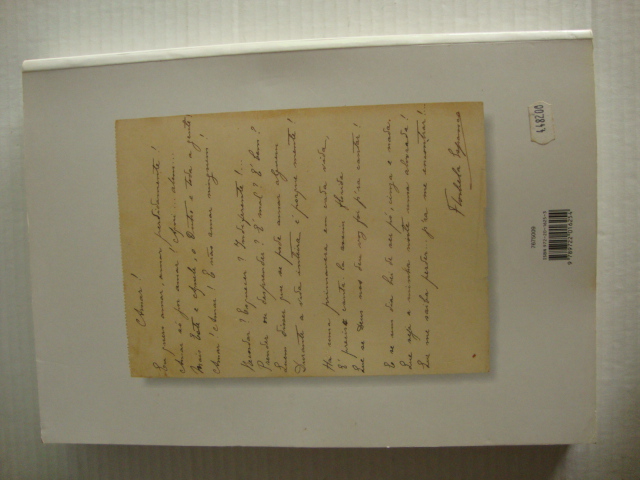 Amar!
Eu quero amar, amar perdidamente!
Amar só por amar! Aqui... alem...
Mais Este e Aquele, o Outro e toda a gente!
Amar! Amar! E não amar ninguem!
Recordar? Esquecer? Indiferente!...
Prender ou desprender? É mal? É bem?
Quem disser que se pode amar alguem
Durante a vida inteira é porque mente!
Ha uma primavera em cada vida,
É preciso canta-la assim florida
Que se Deus nos deu voz foi p'ra cantar!
E se um dia hei de ser pó, cinza e nada
Que seja a minha noite uma alvorada!
Que me saiba perder... p'ra me encontrar!...
Florbela Espanca
7675009
ISBN 972-20-1625-5
9 789722 016254
4.482.00